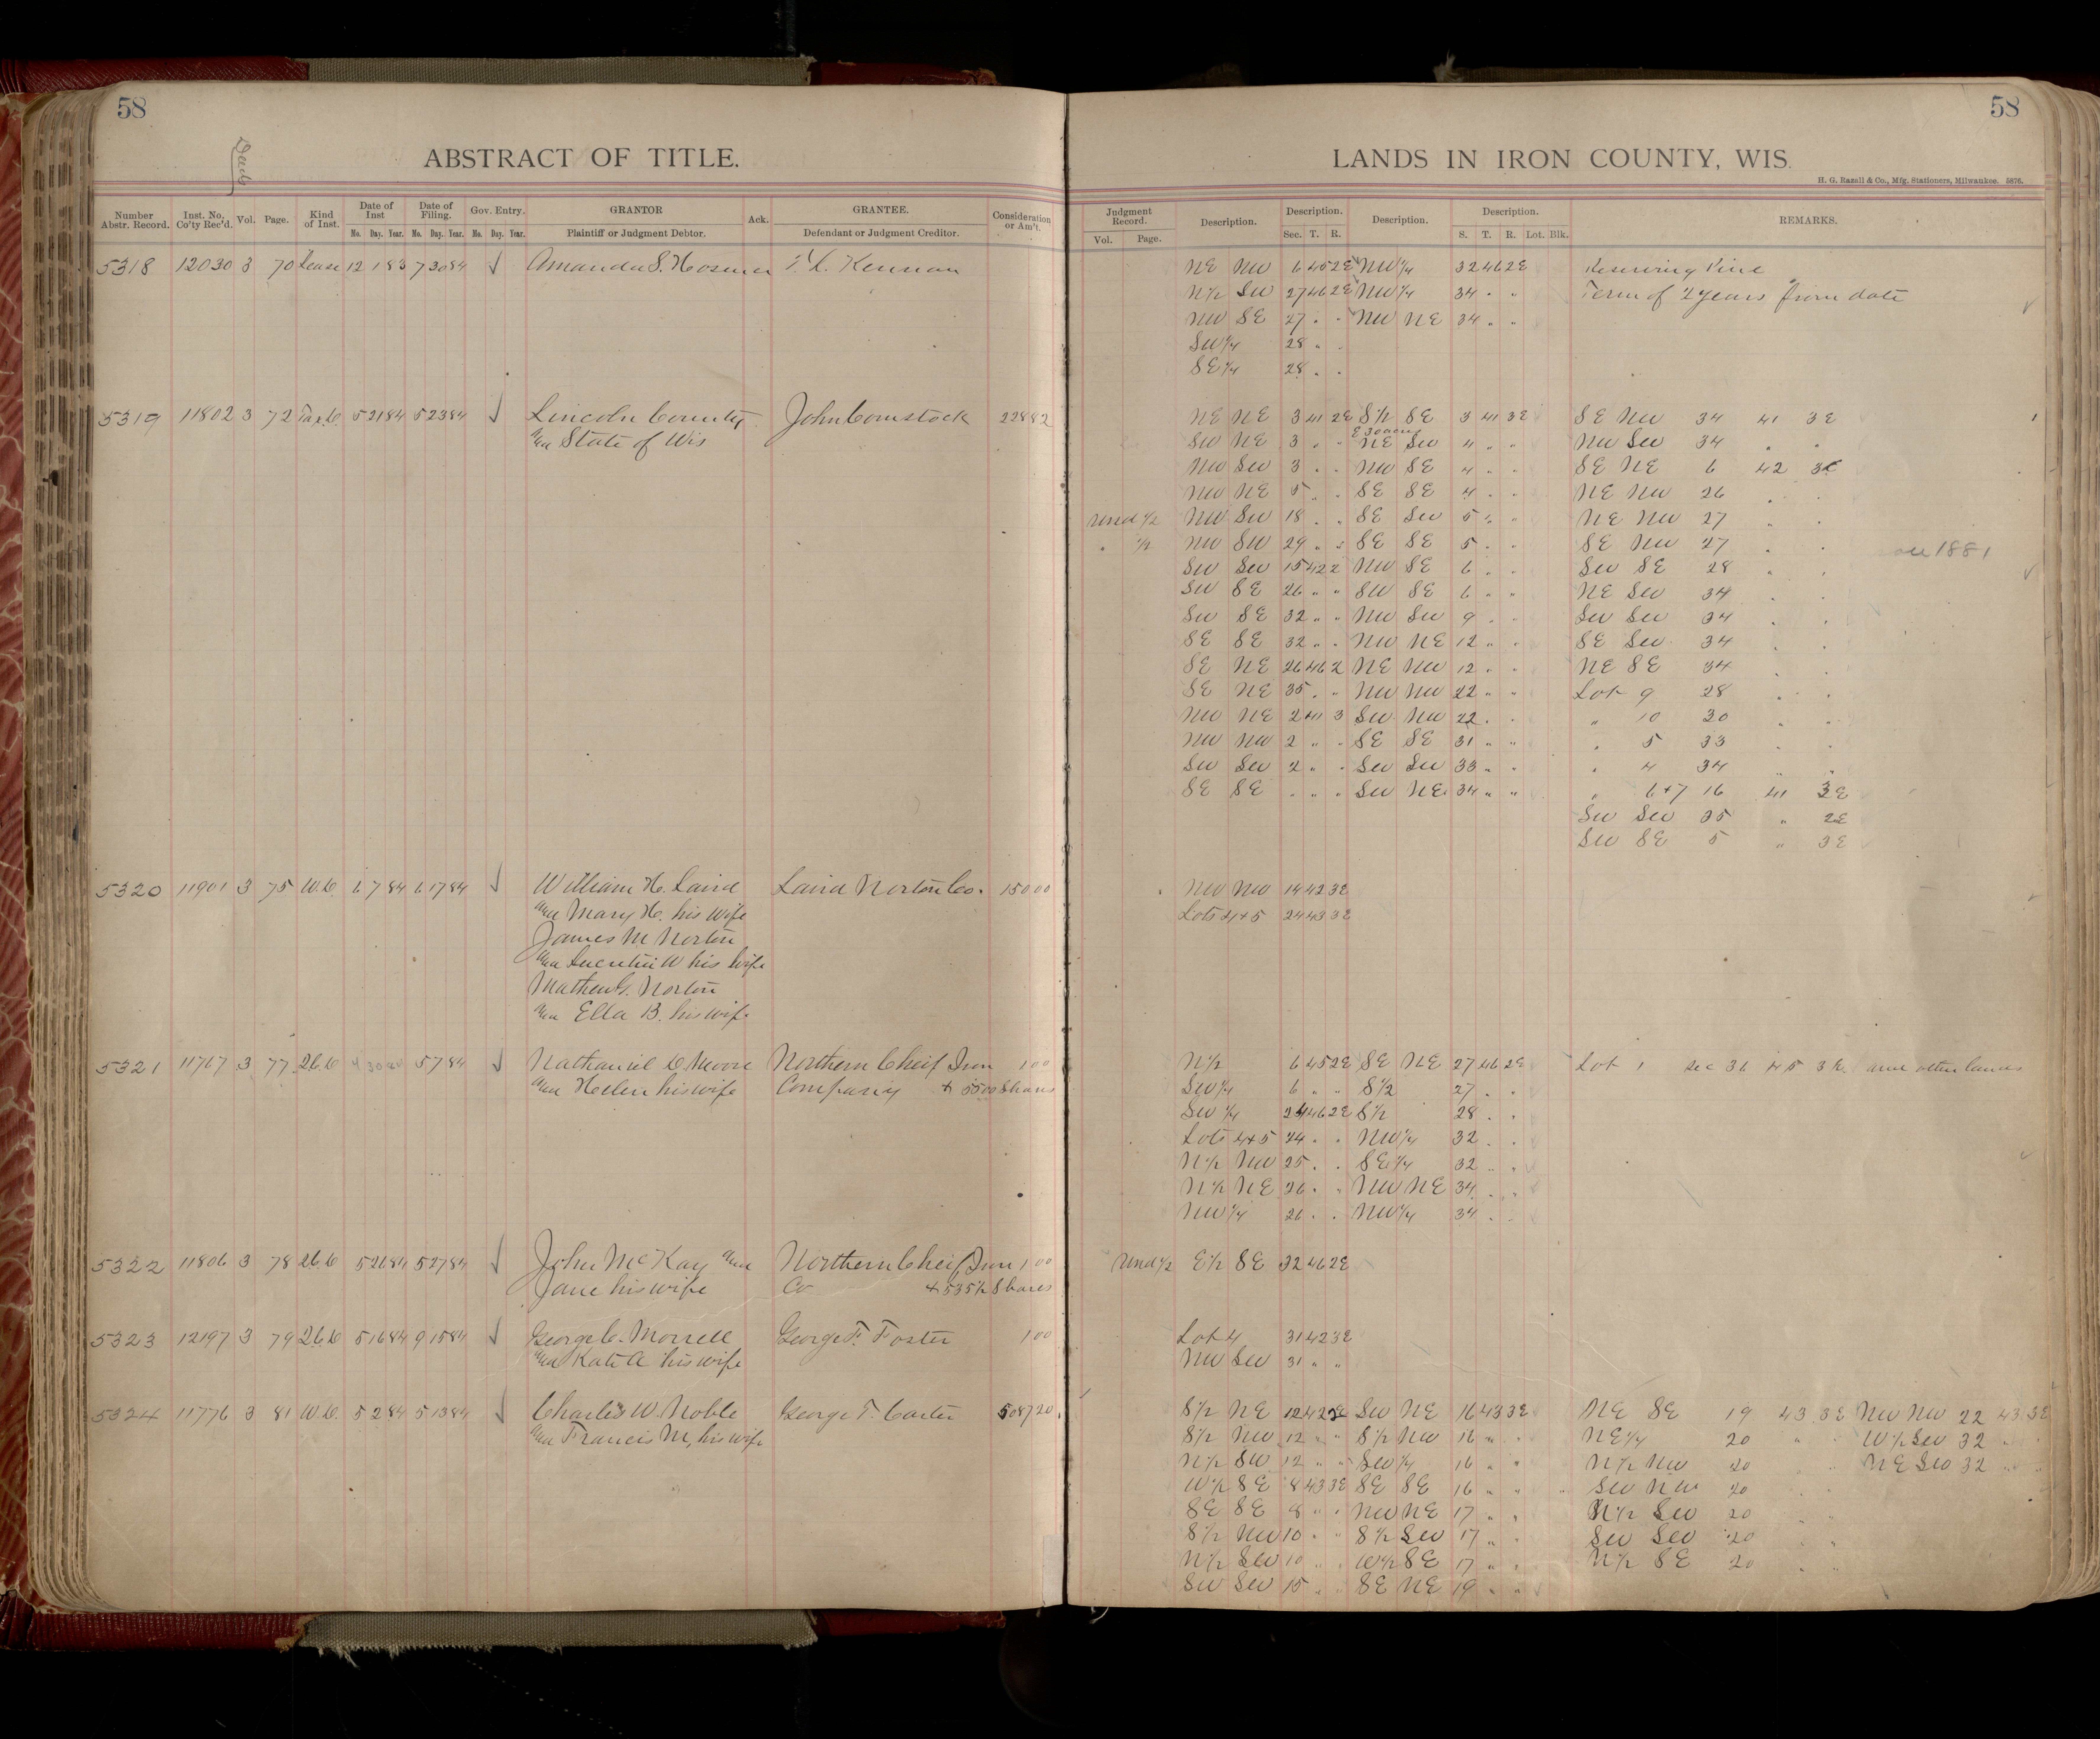 58
58
Deeds
ABSTRACT OF TITLE.
LANDS IN IRON COUNTY, WIS.
H. G. Razall & Co., Mfg. Stationers, Milwaukee. 5876.
Number Abstr. Record. Inst. No. Co'ty Rec'd. Vol. Page. Kind of Inst. Date of Inst Date of Filing. Gov. Entry. GRANTOR Ack. GRANTEE. Consideration or Am't.
No. Day. Year. No. Day. Year. No. Day. Year. Plaintiff or Judgment Debtor. Defendant or Judgment Creditor.
Judgment Record. Description. Description. Description. Description. REMARKS.
Vol. Page. Sec. T. R. S. T. R. Lot. Blk.
5318 12030 3 70 Lease 12 1 83 7 30 84 √ Amanda S. Hosmer T. L. Kennan
NE NW 6 45 2E NW 1/4 32 46 2E Reserving Pine
N 1/2 SW 27 46 2E NW 1/4 34 " " Term of 2 years from date
NW SE 27 " " NW NE 34 " "
SW 1/4 28 " "
SE 1/4 28 " "
5319 11802 3 72 Tax D. 5 21 84 5 23 84 √ Lincoln County John Comstock 228 82
and State of Wis
NE NE 3 41 2E S 1/2 SE 3 41 3E SE NW 34 41 3E
SW NE 3 " " NE SW 4 " " NW SW 34 " "
NW SW 3 " " NW SE 4 " " SE NE 6 42 3E
NW NE 5 " " SE SE 4 " " NE NW 26 " "
Und 1/2 NW SW 18 " " SE SW 5 " " NE NW 27 " "
" 1/2 NW SW 29 " " SE SE 5 " " SE NW 27 " " 1881
SW SW 15 42 2 NW SE 6 " " SW SE 28 " "
SW SE 26 " " SW SE 6 " " NE SW 34 " "
SW SE 32 " " NW SW 9 " " SW SW 34 " "
SE SE 32 " " NW NE 12 " " SE SW 34 " "
SE NE 26 46 2 NE NW 12 " " NE SE 34 " "
SE NE 35 " " NW NW 22 " " Lot 9 28 " "
NW NE 2 41 3 SW NW 22 " " " 10 30 " "
NW NW 2 " " SE SE 31 " " " 5 33 " "
SW SW 2 " " SW SW 33 " " " 4 34 " "
SE SE " " " SW NE 34 " " " 6+7 16 41 3E
SW SW 35 " 2E
SW SE 5 " 3E
5320 11901 3 75 W.D. 6 7 84 6 17 84 √ William H. Laird Laird Norton Co. 150 00
and Mary H. his wife
James M Norton
and Lucretia W his wife
Mathew G. Norton
and Ella B. his wife
NW NW 14 42 3E
Lots 4+5 24 43 3E
5321 11767 3 77 2.C.D 4 30 84 5 7 84 √ Nathaniel D. Moore Northern Chief Iron 1 00
and Helen his wife Company + 5500 Shares
N 1/2 6 45 2E SE NE 27 46 2E Lot 1 Sec 36 45 3E. and other lands
SW 1/4 6 " " S 1/2 27 " "
SW 1/4 24 46 2E S 1/2 28 " "
Lots 4+5 24 " " NW 1/4 32 " "
N 1/2 NW 25 " " SE 1/4 32 " "
N 1/2 NE 26 " " NW NE 34 " "
NW 1/4 26 " " NW 1/4 34 " "
5322 11806 3 78 2.C.D 5 26 84 5 27 84 √ John McKay and Northern Chief Iron 1 00
Jane his wife Co + 535 1/2 Shares
Und 1/2 E 1/2 SE 32 46 2E
5323 12197 3 79 2.C.D 5 16 84 9 15 84 √ George C. Morrell George F. Foster 1 00
and Kate A his wife
Lot 4 31 42 3E
NW SW 31 " "
5324 11776 3 81 W.D. 5 2 84 5 13 84 √ Charles W. Noble George T. Carter 5087 20
and Francis M, his wife
S 1/2 NE 12 42 2E SW NE 16 43 3E NE SE 19 43 3E NW NW 22 43 3E
S 1/2 NW 12 " " S 1/2 NW 16 " " NE 1/4 20 " " W 1/2 SW 32 " "
N 1/2 SW 12 " " SW 1/4 16 " " N 1/2 NW 20 " " NE SW 32 " "
W 1/2 SE 8 43 3E SE SE 16 " " SW NW 20 " "
SE SE 8 " " NW NE 17 " " N 1/2 SW 20 " "
S 1/2 NW 10 " " S 1/2 SW 17 " " SW SW 20 " "
N 1/2 SW 10 " " W 1/2 SE 17 " " N 1/2 SE 20 " "
SW SW 15 " " SE NE 19 " "